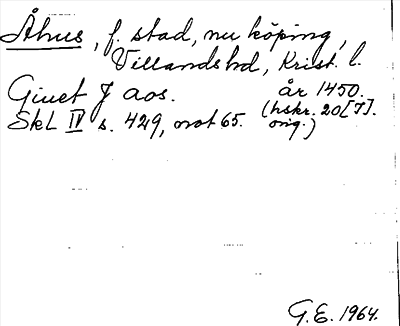 Åhus, f. stad, nu köping,
Villands hd, Krist. l.
Giuet J aos. år 1450.
SkL IV s. 429, not 65. (hskr. 20[7].
orig.)
G.E. 1964.